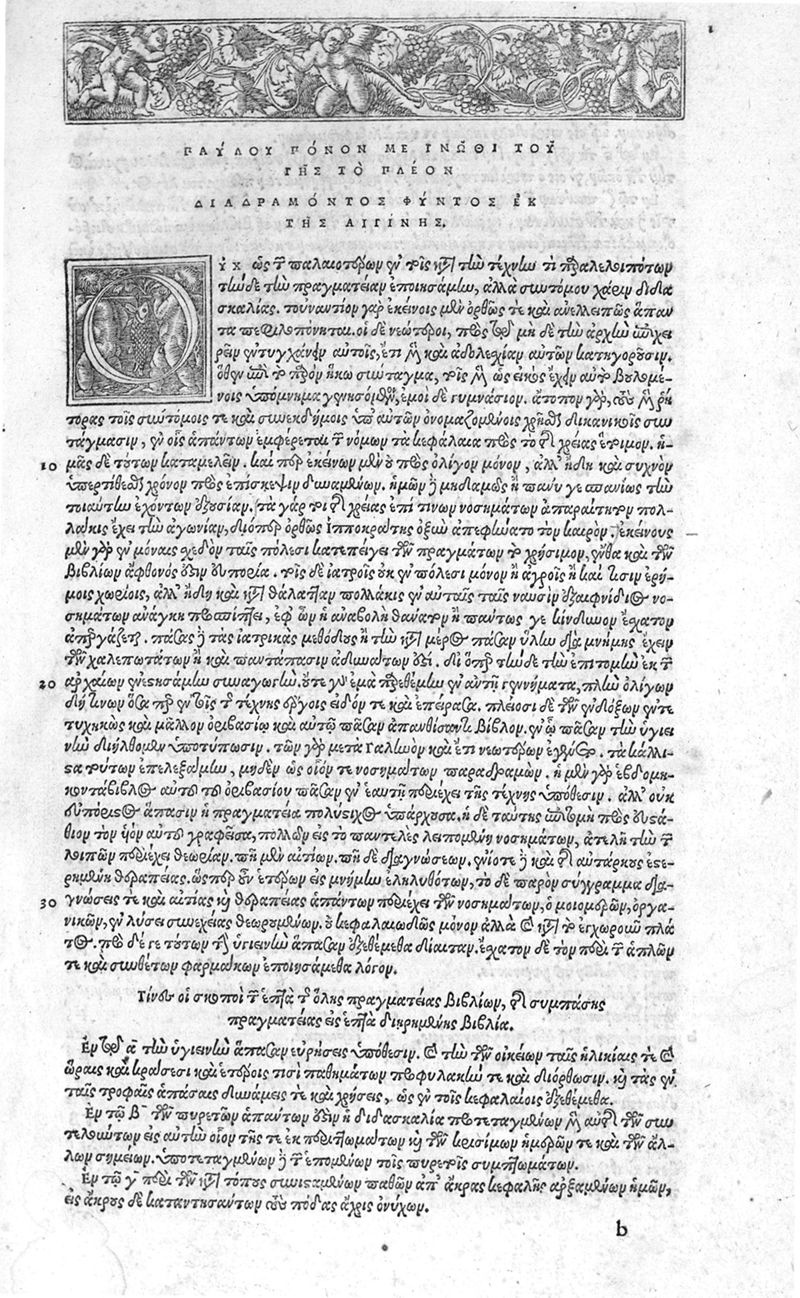 ΠΑΥΛΟΥ ΠΟΝΟΝ ΜΕ ΓΝΩΘΙ ΤΟΥ
ΓΗΣ ΤΟ ΠΛΕΟΝ
ΔΙΑΔΡΑΜΟΝΤΟΣ ΦΥΝΤΟΣ ΕΚ
ΤΗΣ ΑΙΓΙΝΗΣ.
ΟΥΧ ὡς τῶν παλαιοτέρων ἐν τοῖς κατὰ τὴν τέχνην τι παραλελοιπότων
τήνδε τὴν πραγματείαν ἐποιησάμην, ἀλλὰ συντόμου χάριν διδα
σκαλίας. τουναντίον γὰρ ἐκείνοις μὲν ὀρθῶς τε καὶ ἀνελλειπῶς ἅπαν
τα πεφιλοπόνηται. οἱ δὲ νεώτεροι, πρὸς τῷ μὴ δὲ τὴν ἀρχὴν ἐπιχει
ρεῖν ἐντυγχάνειν αὐτοῖς, ἔτι καὶ ἀδολεσχίαν αὐτῶν κατηγοροῦσιν.
ὅθεν ἐπὶ τὸ παρὸν ἥκω σύνταγμα, τοῖς ὡς εἰκὸς ἔχειν αὐτὸ βουλομέ-
νοις ὑπόμνημα γενησόμενον, ἐμοὶ δὲ γυμνάσιον. ἄτοπον γὰρ, τοὺς ῥή
τορας τοῖς συντόμοις τε καὶ συνεκδήμοις ὑπ' αὐτῶν ὀνομαζομένοις χρῆσθαι δικανικοῖς συν
τάγμασιν, ἐν οἷς ἁπάντων ἐμφέρεται τῶν νόμων τὰ κεφάλαια πρὸς τὸ τῆς χρείας ἕτοιμον. ἡ-
10 μᾶς δὲ τούτων καταμελεῖν. καίπερ ἐκείνων μὲν οὐ πρὸς ὀλίγον μόνον, ἀλλ' ἤδη καὶ συχνὸν
ὑπερτίθεσθαι χρόνον πρὸς ἐπίσκεψιν δυναμένων. ἡμῶν δὲ μηδαμῶς ἢ πάνυ γε σπανίως τὴν
τοιαύτην ἐχόντων ἐξουσίαν. τὰ γάρ τοι τῆς χρείας ἐπί τινων νοσημάτων ἀπαραίτητον πολ-
λάκις ἔχει τὴν ἀγωνίαν, διόπερ ὀρθῶς Ἱπποκράτης ὀξὺν ἀπεφήνατο τὸν καιρόν. ἐκείνους
μὲν γὰρ ἐν μόναις σχεδὸν ταῖς πόλεσι κατεπείγει τῶν πραγμάτων τὸ χρήσιμον, ἔνθα καὶ τῶν
βιβλίων ἄφθονός ἐστιν εὐπορία. τοῖς δὲ ἰατροῖς οὐκ ἐν πόλεσι μόνον ἢ ἀγροῖς ἢ καί τισιν ἐρή-
μοις χωρίοις, ἀλλ' ἤδη καὶ κατὰ θάλατταν πολλάκις ἐν αὐταῖς ταῖς ναυσὶν ἐξαιφνίδιος νο-
σημάτων ἀνάγκη προσπίπτει, ἐφ' ὧν ἡ ἀναβολὴ θάνατον ἢ πάντως γε κίνδυνον ἔσχατον
ἀπεργάζεται. πάσας δὲ τὰς ἰατρικὰς μεθόδους ἢ τὴν κατὰ μέρος πᾶσαν ὕλην διὰ μνήμης ἔχειν
τῶν χαλεπωτάτων ἢ καὶ παντάπασιν ἀδυνάτων ἐστί. δι' ὅπερ τήνδε τὴν ἐπιτομὴν ἐκ τῶν
20 ἀρχαίων πεποίημαι συναγωγήν. οὔτε γοῦν ἐμὰ παρεθέμην ἐν αὐτῇ γεννήματα, πλὴν ὀλίγων
δή τινων ὅσα περ ἐν τοῖς τῆς τέχνης ἔργοις εἶδόν τε καὶ ἐπείρασα. πλείοσι δὲ τῶν ἐνδόξων ἐντε
τυχηκὼς καὶ μᾶλλον ὀριβασίῳ καὶ αὐτῷ πᾶσαν ἀπανθίσαντι βίβλον. ἐν ᾧ πᾶσαν τὴν ὑγιει
νὴν διήλθομεν ὑποτύπωσιν. τῶν γὰρ μετὰ Γαληνὸν καὶ ἔτι νεωτέρων ἐγένετο. τὰ κάλλι-
στα τούτων ἐπελεξάμην, μηδὲν ὡς οἷόν τε νοσημάτων παραδραμών. ἡ μὲν γὰρ ἑβδομη-
κοντάβιβλος αὐτοῦ τοῦ ὀριβασίου πᾶσαν ἐν ἑαυτῇ περιέχει τῆς τέχνης ὑπόθεσιν. ἀλλ' οὐκ
εὐπόριστος ἅπασιν ἡ πραγματεία πολύστιχος ὑπάρχουσα. ἡ δὲ ταύτης ἐπιτομὴ πρὸς εὐστά-
θιον τὸν υἱὸν αὐτοῦ γραφεῖσα, πολλῶν εἰς τὸ παντελὲς λειπομένη νοσημάτων, ἀτελῆ τὴν τῶν
λοιπῶν περιέχει θεωρίαν. πῆ μὲν αἰτίων. πῆ δὲ διαγνώσεων. ἐνίοτε δὲ καὶ τῆς αὐτάρκους ἐστε-
ρημένη θεραπείας. ὥσπερ οὖν ἑτέρων εἰς μνήμην ἐληλυθότων, τὸ δὲ παρὸν σύγγραμμα δια-
30 γνώσεις τε καὶ αἰτίας καὶ θεραπείας ἁπάντων περιέχει τῶν νοσημάτων, ὁμοιομερῶν, ὀργα-
νικῶν, ἐν λύσει συνεχείας θεωρουμένων. οὐ κεφαλαιωδῶς μόνον ἀλλὰ καὶ κατὰ τὸ ἐγχωροῦν πλά
τος. πρὸ δέ γε τούτων τὴν ὑγιεινὴν ἅπασαν ἐξεθέμεθα δίαιταν. ἔσχατον δὲ τὸν περὶ τῶν ἁπλῶν
τε καὶ συνθέτων φαρμάκων ἐποιησάμεθα λόγον.
Τίνες οἱ σκοποὶ τῶν ἑπτὰ τῆς ὅλης πραγματείας βιβλίων, τῆς συμπάσης
πραγματείας εἰς ἑπτὰ διῃρημένης βιβλία.
Ἐν τῷ α΄ τὴν ὑγιεινὴν ἅπασαν εὑρήσεις ὑπόθεσιν. καὶ τὴν τῶν οἰκείων ταῖς ἡλικίαις τε καὶ
ὥραις καὶ κράσεσι καὶ ἑτέροις τισὶ παθημάτων προφυλακήν τε καὶ διόρθωσιν. καὶ τὰς ἐν
ταῖς τροφαῖς ἁπάσαις δυνάμεις τε καὶ χρήσεις, ὡς ἐν τοῖς κεφαλαίοις ἐξεθέμεθα.
Ἐν τῷ Β΄ τῶν πυρετῶν ἁπάντων ἐστὶν ἡ διδασκαλία προτεταγμένων αὐτῆς τῶν συν
τελούντων εἰς αὐτὴν οἷον τῆς τε ἐκ περιττωμάτων καὶ τῶν κρισίμων ἡμερῶν τε καὶ τῶν ἄλ-
λων σημείων. ὑποτεταγμένων δὲ τῶν ἑπομένων τοῖς πυρετοῖς συμπτωμάτων.
Ἐν τῷ γ΄ περὶ τῶν κατὰ τόπους συνισταμένων παθῶν ἀπ' ἄκρας κεφαλῆς ἀρξαμένων ἡμῶν,
εἰς ἄκρους δὲ καταντησάντων τοὺς πόδας ἄχρις ὀνύχων.
b